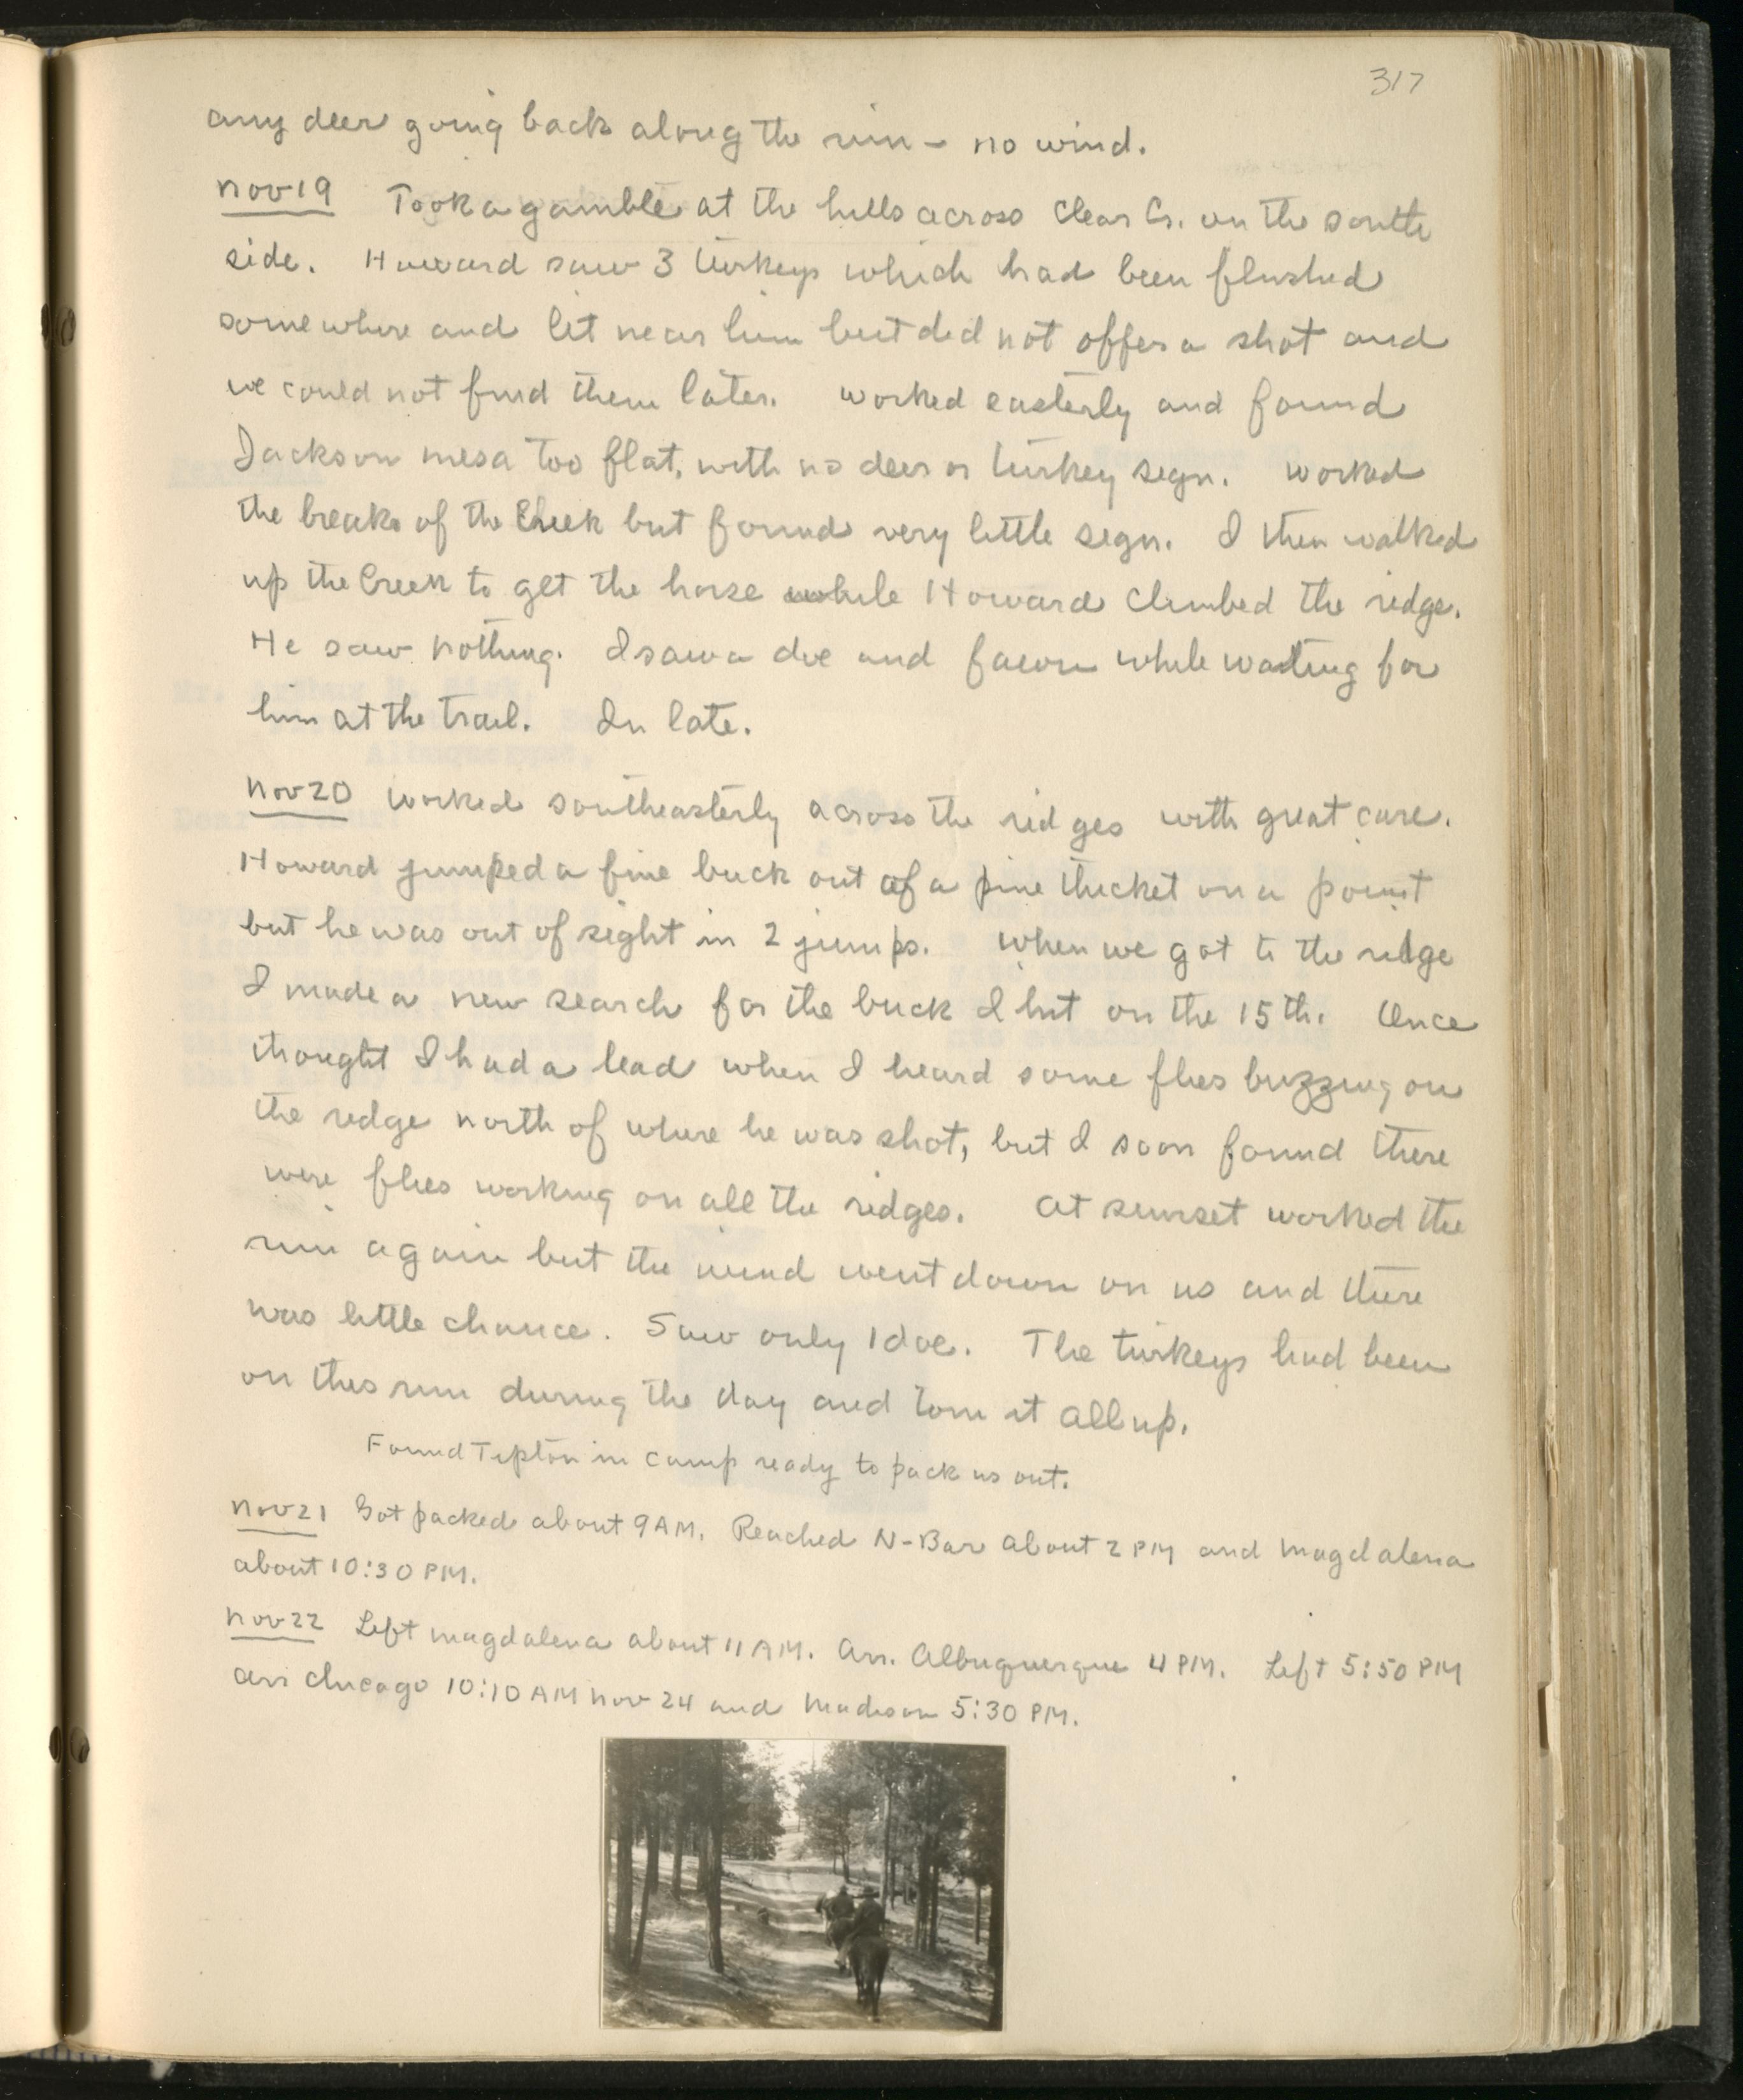 317
any deer going back along the rim - no wind.
Nov 19 Took a gamble at the hills across Clear Cr. on the south
side. Howard saw 3 turkeys which had been flushed
somewhere and lit near him but did not offer a shot and
we could not find them later. Worked easterly and found
Jackson mesa too flat, with no deer or turkey sign. Worked
the breaks of the Creek but found very little sign. I then walked
up the Creek to get the horse while Howard climbed the ridge.
He saw nothing. I saw a doe and fawn while waiting for
him at the trail. In late.
Nov 20 Worked southeasterly across the ridges with great care.
Howard jumped a fine buck out of a pine thicket on a point
but he was out of sight in 2 jumps. When we got to the ridge
I made a new search for the buck I hit on the 15th. Once
thought I had a lead when I heard some flies buzzing on
the ridge north of where he was shot, but I soon found there
were flies working on all the ridges. At sunset worked the
rim again but the wind went down on us and there
was little chance. Saw only 1 doe. The turkeys had been
on this rim during the day and torn it all up.
Found Tipton in camp ready to pack us out.
Nov 21 Got packed about 9 AM. Reached N-Bar about 2 PM and Magdalena
about 10:30 PM.
Nov 22 Left Magdalena about 11 AM. Arr. Albuquerque 4 PM. Left 5:50 PM
Arr Chicago 10:10 AM Nov 24 and Madison 5:30 PM.